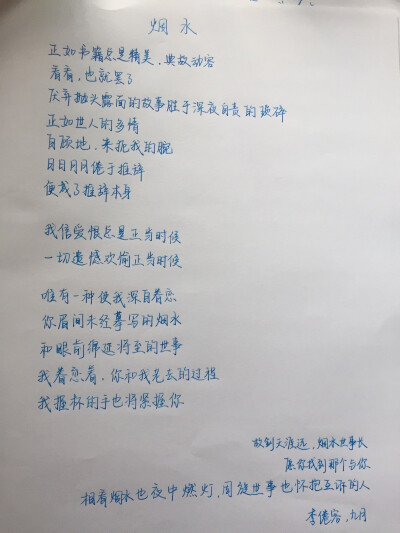 烟水
正如书籍总是精美，典故动容
看看，也就罢了
厌弃抛头露面的故事胜于深夜自责的琐碎
正如世人的多情
自顾地，来扼我的腕
日日月月倦于推辞
便成了推辞本身
我信爱恨总是正当时候
一切遗憾欢愉正当时候
唯有一种使我深自眷恋
你眉间未经摹写的烟水
和眼前绵延将至的世事
我眷恋着，你和我老去的过程
我握杯的手也将紧握你
故剑天涯远，烟水世事长
愿你找到那个与你
相看烟水也夜中燃灯，周旋世事也怀抱互诉的人
李倦容，九月